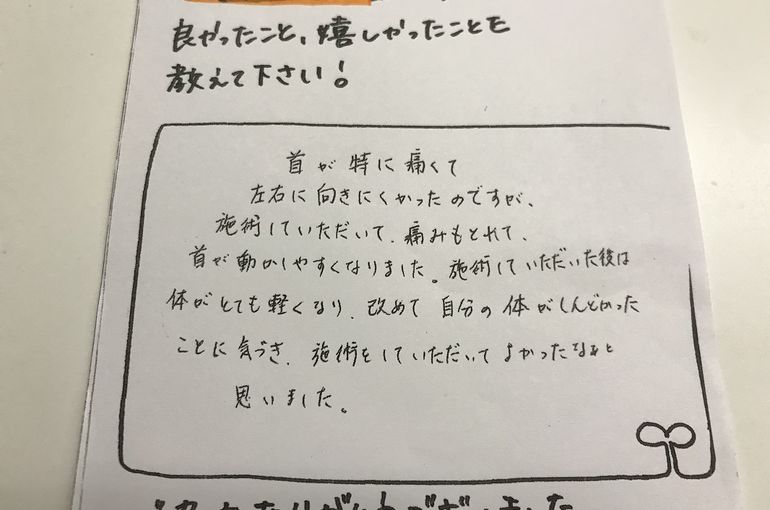 良かったこと、嬉しかったことを
教えて下さい！
首が特に痛くて
左右に向きにくかったのですが、
施術していただいて、痛みもとれて、
首が動かしやすくなりました。施術していただいた後は
体がとても軽くなり、改めて自分の体がしんどかった
ことに気づき、施術をしていただいてよかったなぁと
思いました。
ありがとうございました